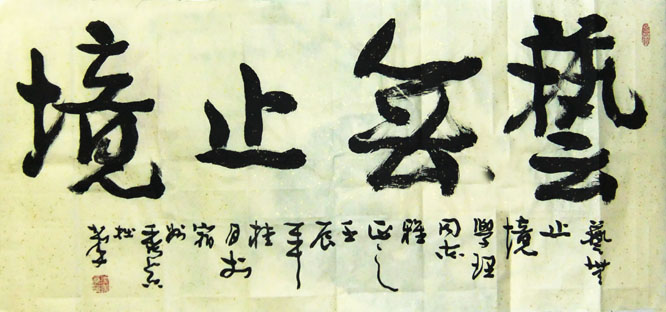 藝無止境
藝無
止
境
學理
同志
雅
正之
壬
辰
年
桂
月於
宿
州